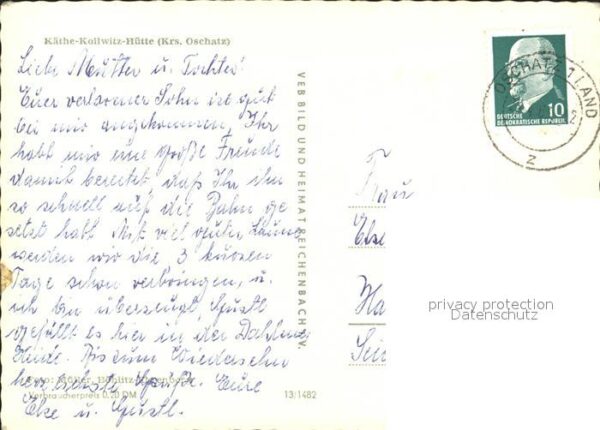 Käthe-Kollwitz-Hütte (Krs. Oschatz)
Liebe Mutter u. Tochter!
Euer verlorener Sohn ist gut
bei mir angekommen, Ihr
habt mir eine große Freude
damit bereitet, daß Ihr ihn
so schnell auf die Bahn ge
setzt habt. Mit viel guter Laune
werden wir die 3 kurzen
Tage schon verbringen, u.
ich bin überzeugt, Gustl
gefällt es hier in der Dahlener
Heide. Bis zum Wiedersehn
herzlichste Grüße Eure
Else u. Gustl.
Verbraucherpreis 0,20 DM
13/1482
VEB BILD UND HEIMAT REICHENBACH V.
OSCHATZ 1 LAND
DEUTSCHE
DEMOKRATISCHE REPUBLIK
10
Z
Frau
Else
Ha
privacy protection
Datenschutz